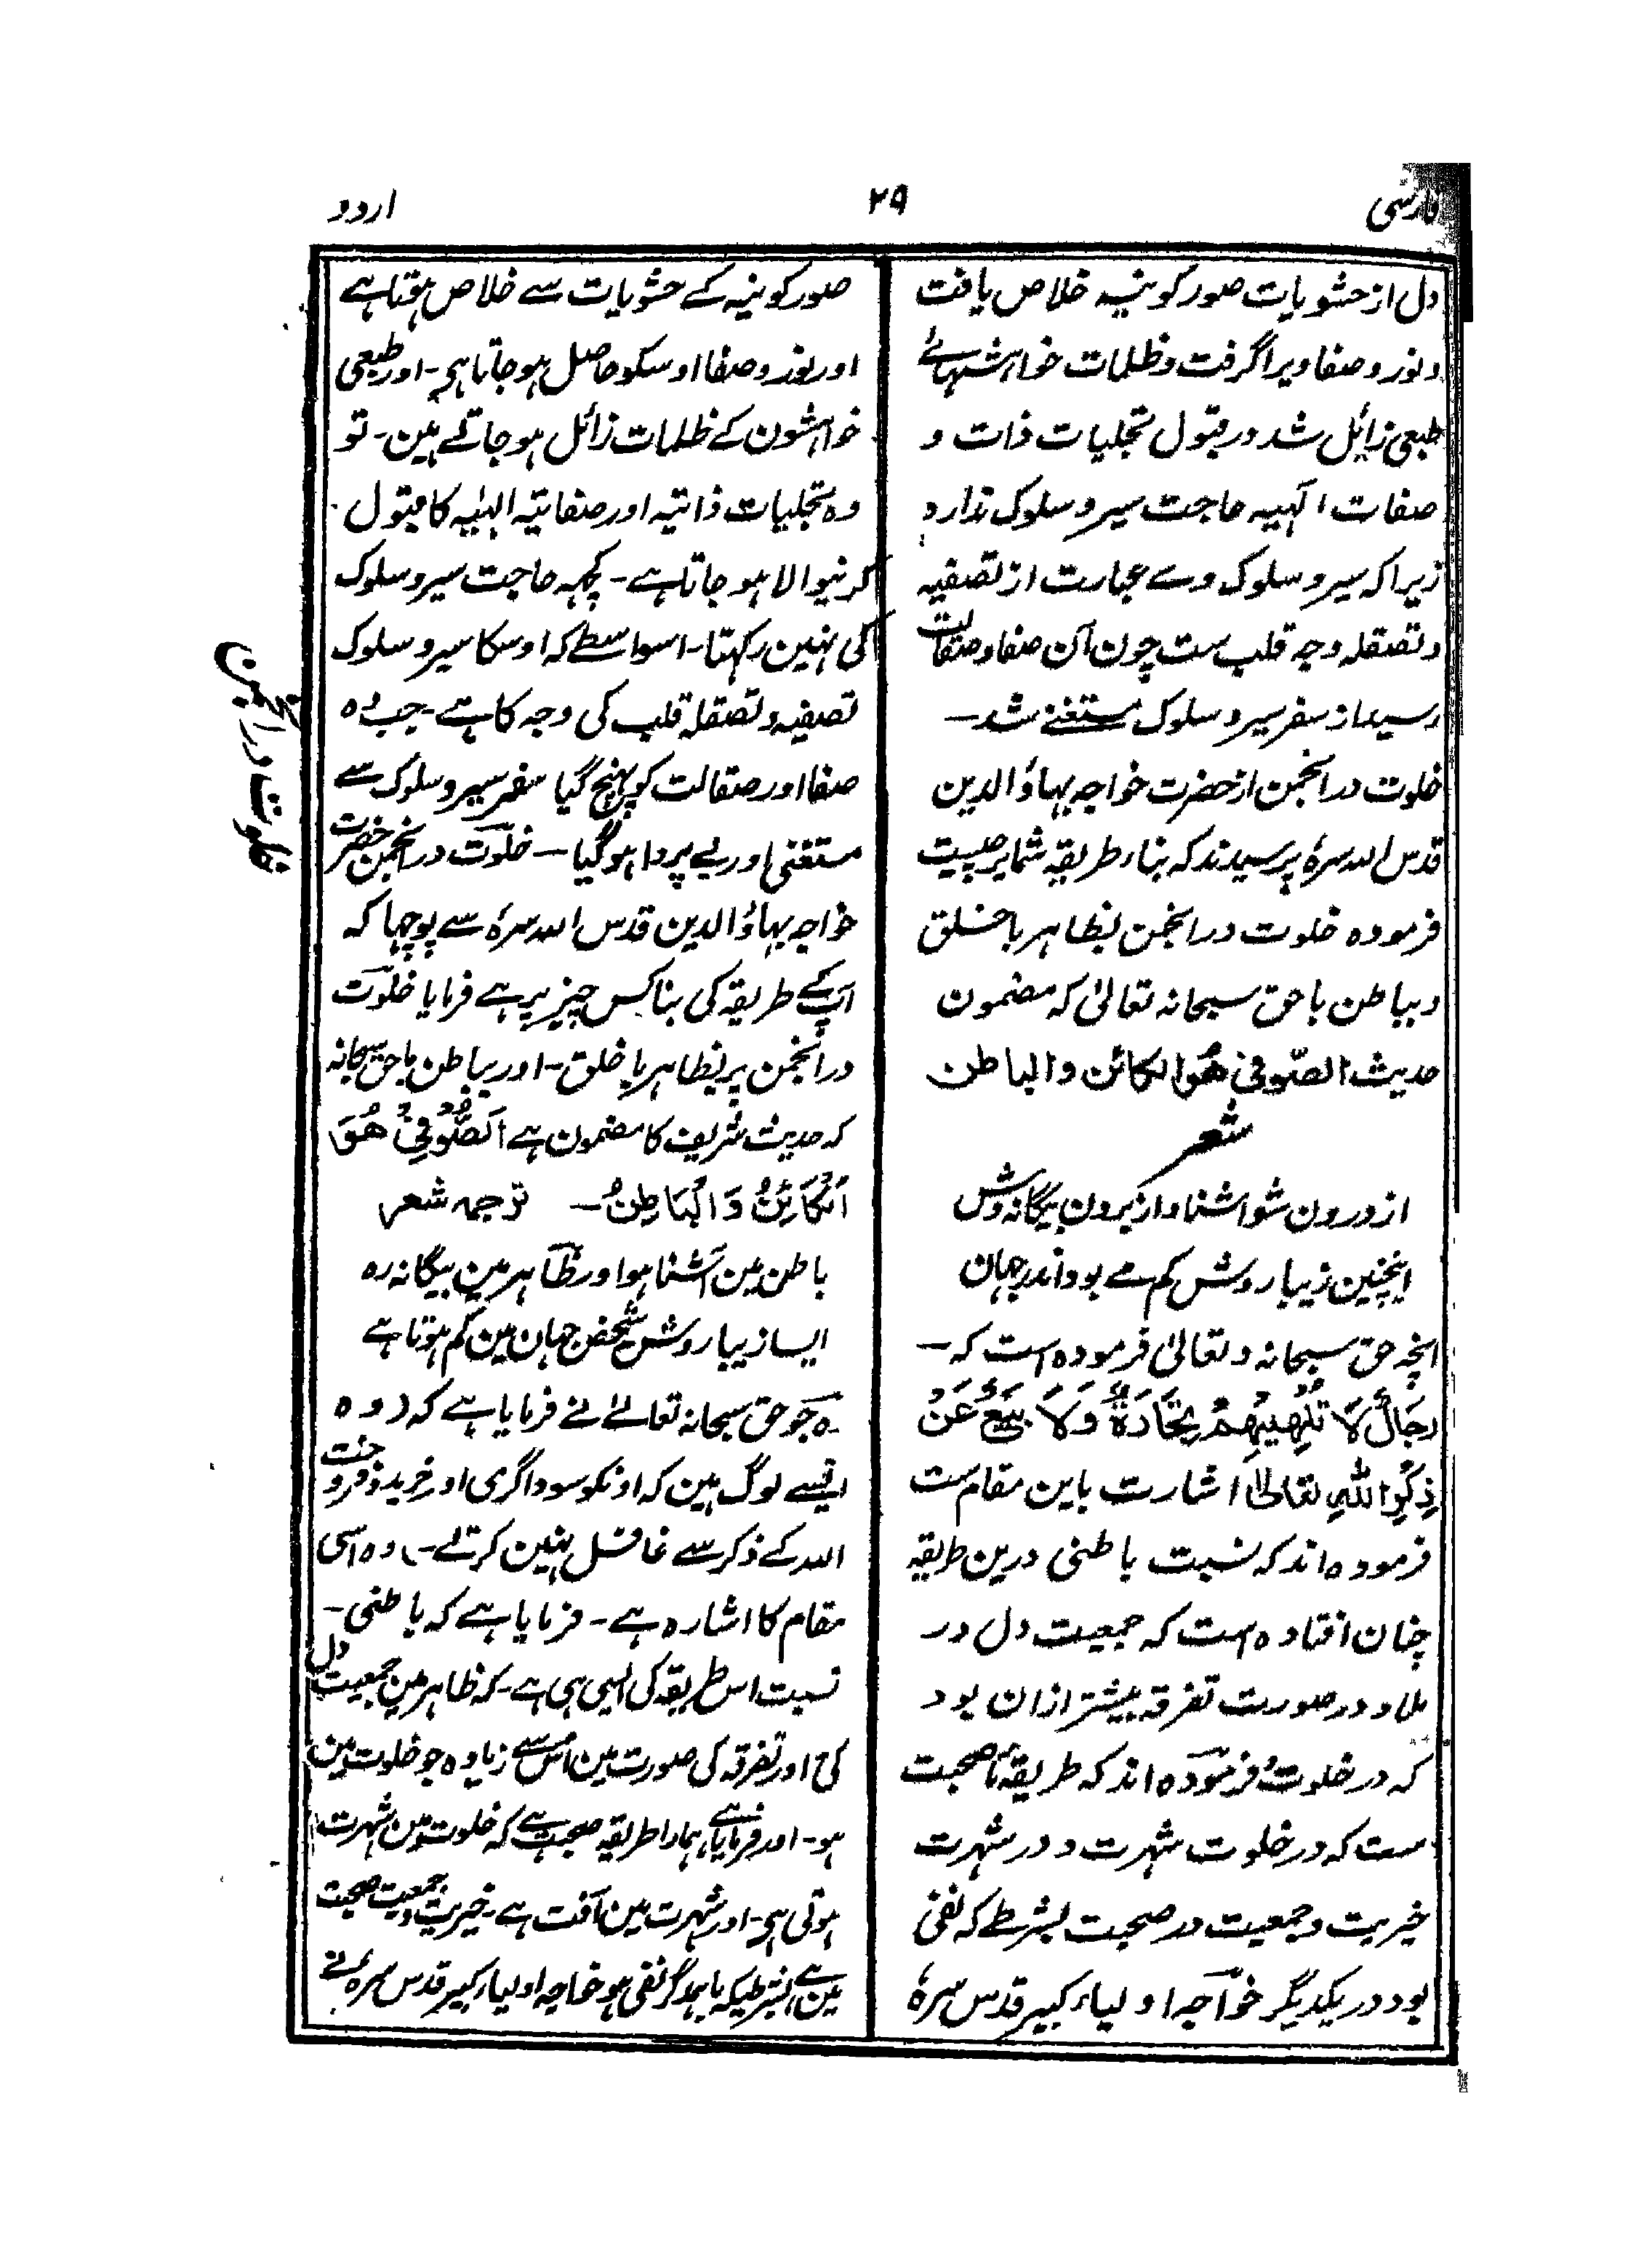 فارسی
۲۹
اردو
دل از حشویات صور کونیہ خلاص یافت
و نور و صفا ویرا گرفت و ظلمات خواہشہائے
طبعی زائل شد در قبول تجلیات ذات و
صفات الٰہیہ حاجت سیر و سلوک ندارد
زیرا کہ سیر و سلوک وے عبارت از تصفیہ
و تصقلہ وجہ قلب ست چون آن صفا و صقالت
رسید از سفر سیر و سلوک مستغنے شد۔
خلوت در انجمن از حضرت خواجہ بہاؤ الدین
قدس اللہ سرہٗ پرسیدند کہ بناء طریقہ شما بر چیست
فرمودہ خلوت در انجمن بظاہر با خلق
و بباطن با حق سبحانہ تعالیٰ کہ مضمون
حدیث الصّوفی ھُوَ الکائن والباطن
شعر
از درون شو آشنا و از بیرون بیگانہ وش
اینچنین زیبا روش کم مے بود اندر جہان
انچہ حق سبحانہ و تعالیٰ فرمودہ است کہ۔
رِجَالٌ لَا تُلْھِیْھِمْ تِجَارَۃٌ وَلَا بَیْعٌ عَنْ
ذِکْرِ اللّٰہِ تعالیٰ اشارت باین مقام ست
فرمودہ اند کہ نسبت باطنی درین طریقہ
چنان افتادہ است کہ جمعیت دل در
ملا و در صورت تفرقہ بیشتر ازان بود
کہ در خلوت و فرمودہ اند کہ طریقہ ما صحبت
ست کہ در خلوت شہرت و در شہرت
خیریت و جمعیت در صحبت بشرطے کہ نفی
بود در یکدیگر خواجہ اولیاء کبیر قدس سرہٗ
صور کونیہ کے حشویات سے خلاص ہوتا ہے
اور نور و صفا اوسکو حاصل ہو جاتا ہے۔ اور طبعی
خواہشون کے ظلمات زائل ہو جاتے ہین۔ تو
وہ تجلیات ذاتیہ اور صفاتیہ الہٰیہ کا قبول
کرنیوالا ہو جاتا ہے۔ کچہہ حاجت سیر و سلوک
کی نہین رکہتا۔ اسواسطے کہ اوسکا سیر و سلوک
تصفیہ و تصقلہ قلب کی وجہ کا ہے۔ جب وہ
صفا اور صقالت کو پہنچ گیا سفر سیر و سلوک سے
مستغنی اور بے پردا ہو گیا۔ خلوت در انجمن حضرت
خواجہ بہاؤ الدین قدس اللہ سرہٗ سے پوچہا کہ
آپکے طریقہ کی بنا کس چیز پر ہے فرمایا خلوت
در انجمن پر بظاہر با خلق۔ اور بباطن باحق سبحانہ
کہ حدیث شریف کا مضمون ہے اَلصُّوْفِیُ ھُوَ
اَلْکَائِنُ وَالْبَاطِنُ۔ ترجمہ شعر
باطن مین آشنا ہو اور ظاہر مین بیگانہ رہ
ایسا زیبا روش شخص جہان مین کم ہوتا ہے
جو حق سبحانہ تعالےٰ نے فرمایا ہے کہ (وہ
ایسے لوگ ہین کہ اونکو سوداگری اور خرید و فروخت
اللہ کے ذکر سے غافل نہین کرتے۔) وہ اسی
مقام کا اشارہ ہے۔ فرمایا ہے کہ باطنی۔
نسبت اس طریقہ کی ایسی ہی ہے۔ کہ ظاہر مین جمعیت دل
کی اور تفرقہ کی صورت مین اس سے زیادہ جو خلوت مین
ہو۔ اور فرمایا ہے ہمارا طریقہ صحبت ہے کہ خلوت مین شہرت
ہوتی ہی۔ اور شہرت مین آفت ہے۔ خیریت و جمعیت صحبت
مین ہے بشرطیکہ باہمدگر نفی ہو خواجہ اولیاء کبیر قدس سرہٗ نے
خلوت در انجمن